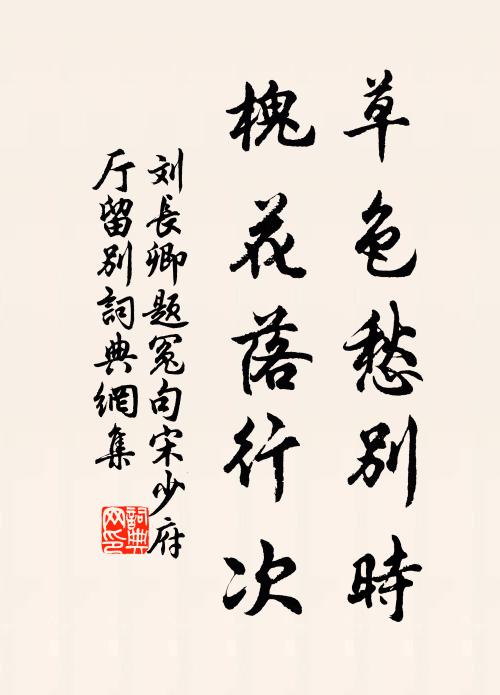 草色愁別時
槐花落行次
刘長卿題冤句宋少府
厅留別詞典網集
詞典
网印